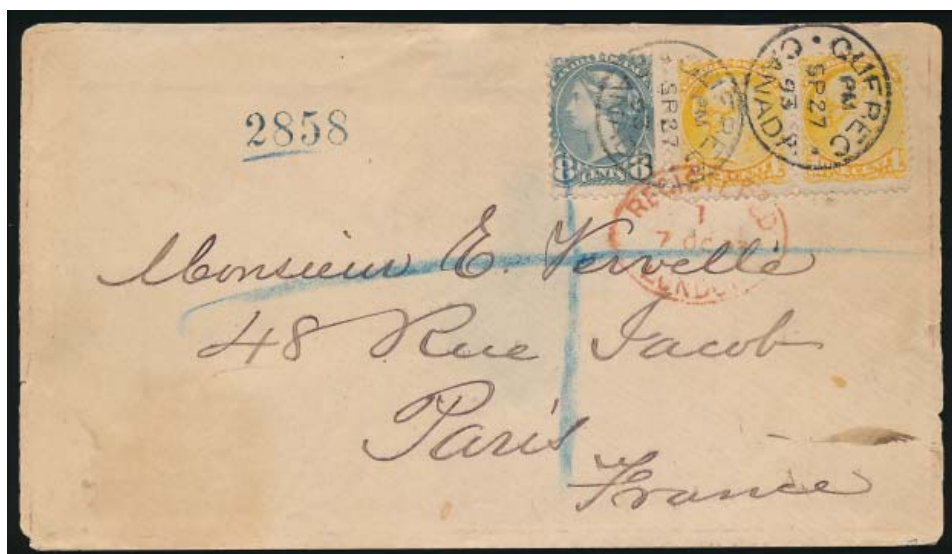 2858
8 CENTS 8
PM
SP 27
QUEBEC
PM
SP 27
93
CANADA
REGISTERED
7 OC
LONDON
Monsieur E. Vervelle
48 Rue Jacob
Paris
France